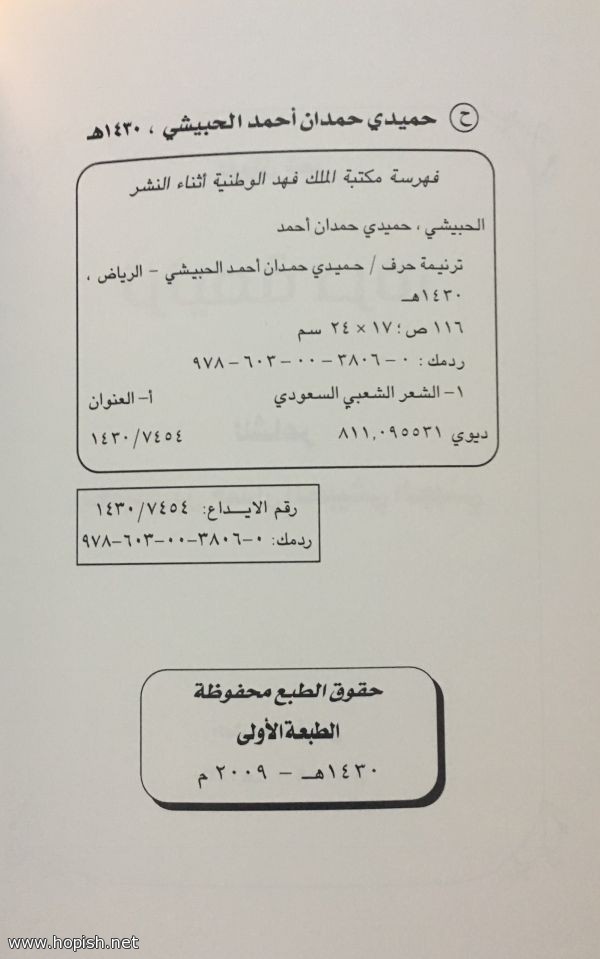 ح حميدي حمدان أحمد الحبيشي ، ١٤٣٠هـ
فهرسة مكتبة الملك فهد الوطنية أثناء النشر
الحبيشي ، حميدي حمدان أحمد
ترنيمة حرف / حميدي حمدان أحمد الحبيشي – الرياض ،
١٤٣٠هـ
١١٦ ص ؛ ١٧ × ٢٤ سم
ردمك : ٠ – ٣٨٠٦ – ٠٠ – ٦٠٣ – ٩٧٨
١– الشعر الشعبي السعودي أ– العنوان
ديوي ٨١١,٠٩٥٥٣١ ١٤٣٠/٧٤٥٤
رقم الايـــداع: ١٤٣٠/٧٤٥٤
ردمك: ٠–٣٨٠٦–٠٠–٦٠٣–٩٧٨
حقوق الطبع محفوظة
الطبعة الأولى
١٤٣٠هـ – ٢٠٠٩ م
www.hopish.net